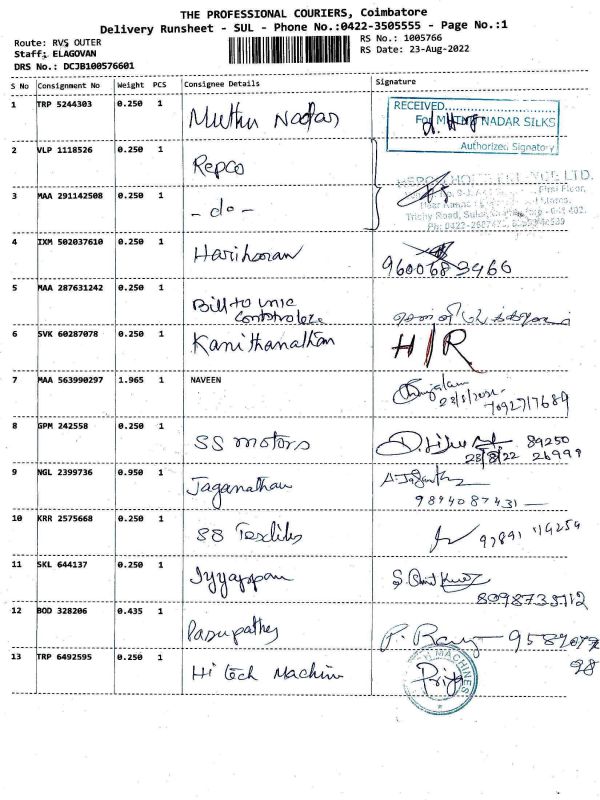 THE PROFESSIONAL COURIERS, Coimbatore
Delivery Runsheet - SUL - Phone No.:0422-3505555 - Page No.:1
Route: RVS OUTER
RS No.: 1005766
Staff: ELAGOVAN
RS Date: 23-Aug-2022
DRS No.: DCJB100576601
S No Consignment No Weight PCS Consignee Details Signature
1 TRP 5244303 0.250 1 Muthu Nadar
RECEIVED
For MUTHU NADAR SILKS
Authorized Signatory
2 VLP 1118526 0.250 1 Repco
3 MAA 291142508 0.250 1 - do -
Trichy Road, Sulur
4 IXM 502037610 0.250 1 Hariharan 9600683466
5 MAA 287631242 0.250 1 Bill to
6 SVK 60287078 0.250 1 Kanithanathan H/R
7 MAA 563990297 1.965 1 NAVEEN
7092717689
8 GPM 242558 0.250 1 SS motors 89250
23/8/22 26999
9 NGL 2399736 0.950 1 Jaganathan
9894087431
10 KRR 2575668 0.250 1 SS Textiles
11 SKL 644137 0.250 1 Iyyappan
8098735112
12 BOD 328206 0.435 1 Pasupathy
13 TRP 6492595 0.250 1 Hi tech Machine Priya
MACHINES